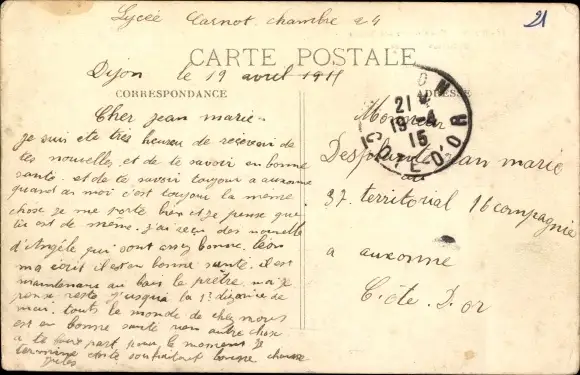 Lycée Carnot chambre 24
21
CARTE POSTALE
Dijon le 19 avril 1915
CORRESPONDANCE
ADRESSE
21
19-4
15
CÔTE-D'OR
Cher Jean marie
Je suis ete très heureu de recevoir de
tes nouvelles, et de te savoir en bonne
santé. et de te savoir toujour a auxonne
quand au moi c'est toujour la même
chose je me porte bien et je pense que
toi est de même. j'ai reçu des nouvelle
d'Angèle qui sont assez bonne. Léon
ma écrit il est en bonne santé. il est
maintenant au bois le prêtre. moi je
pense reste jusqua la 1re dizaine de
mai. touts le monde de chez nous
est en bonne santé rien autre chose
a te pour le moment je
termine souhaitant bonne chance
Monsieur
Jean marie
37. territorial 16 compagnie
a auxonne
Côte. D'or